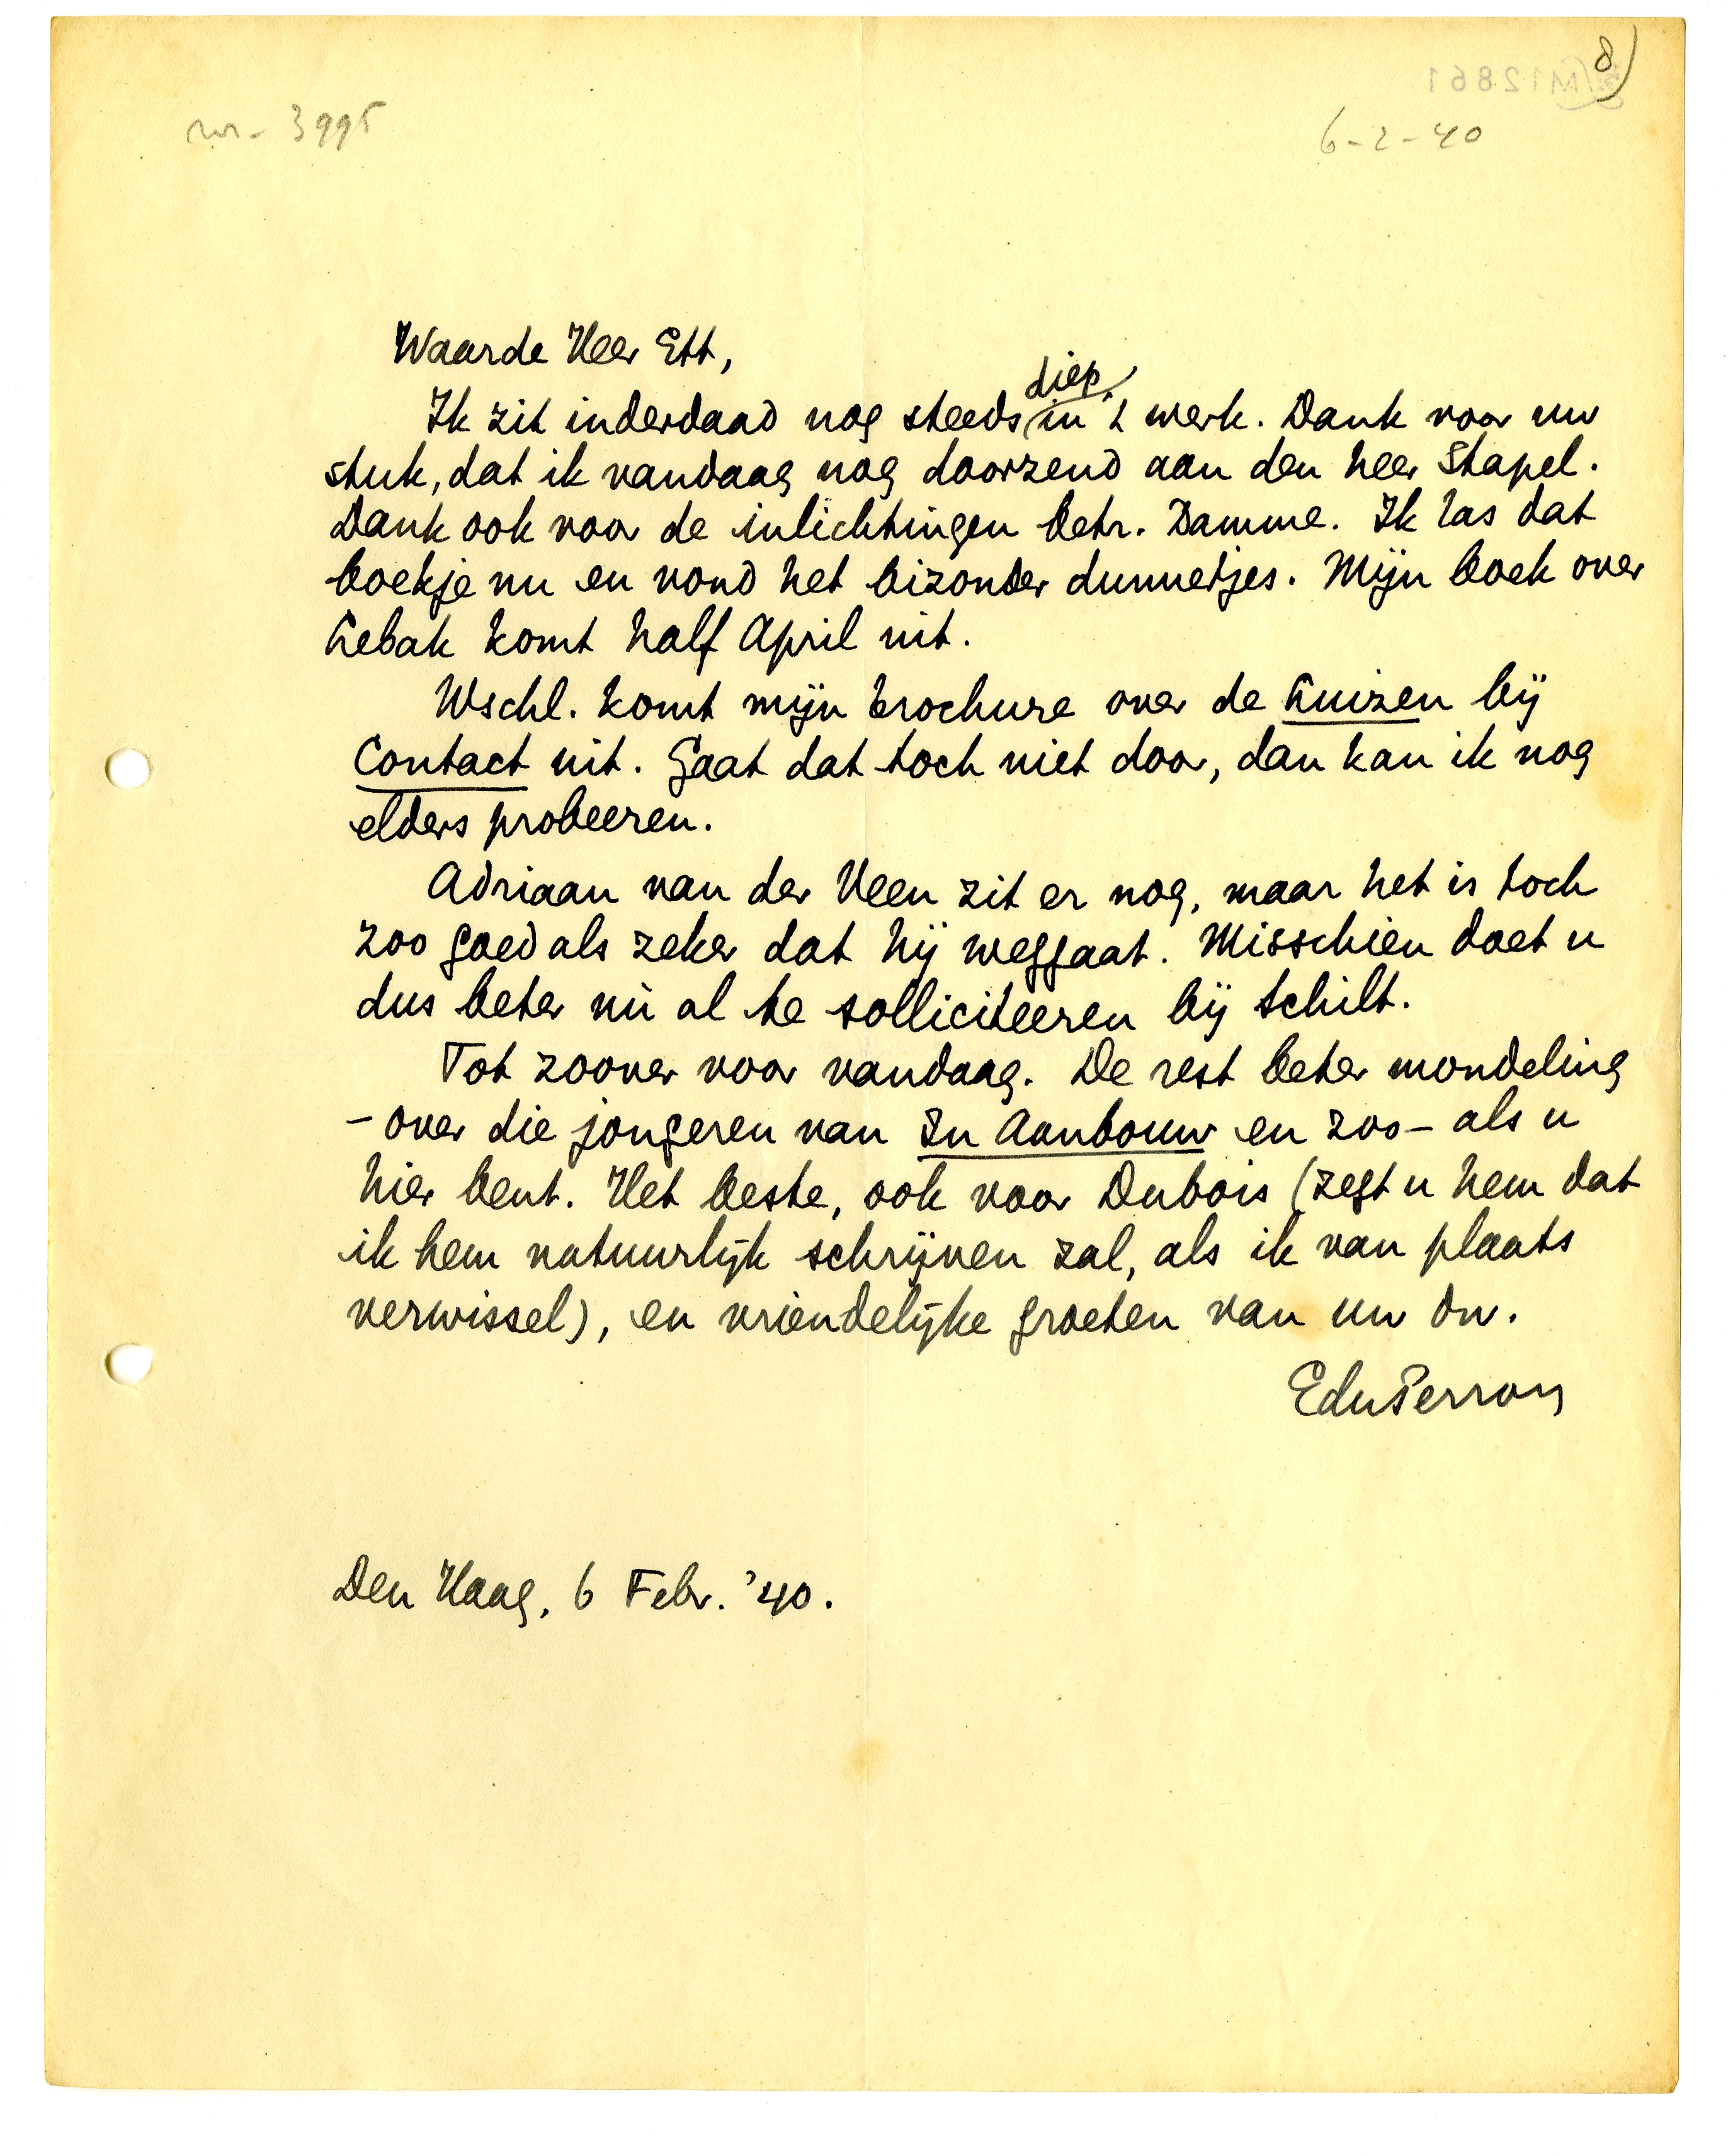 8)
M12861
nr - 3995
6-2-40
Waarde Heer Ett,
diep
Ik zit inderdaad nog steeds in 't werk. Dank voor uw
stuk, dat ik vandaag nog doorzend aan den heer Stapel.
Dank ook voor de inlichtingen betr. Damme. Ik las dat
boekje nu en vond het bizonder dunnetjes. Mijn boek over
Lebak komt half April uit.
Wschl. komt mijn brochure over de Luizen bij
Contact uit. Gaat dat toch niet door, dan kan ik nog
elders probeeren.
Adriaan van der Veen zit er nog, maar het is toch
zoo goed als zeker dat hij weggaat. Misschien doet u
dus beter nù al te solliciteeren bij Schilt.
Tot zoover voor vandaag. De rest beter mondeling
– over die jongeren van In Aanbouw en zoo – als u
hier bent. Het beste, ook voor Dubois (zegt u hem dat
ik hem natuurlijk schrijven zal, als ik van plaats
verwissel), en vriendelijke groeten van uw dw.
EduPerron
Den Haag, 6 Febr. '40.